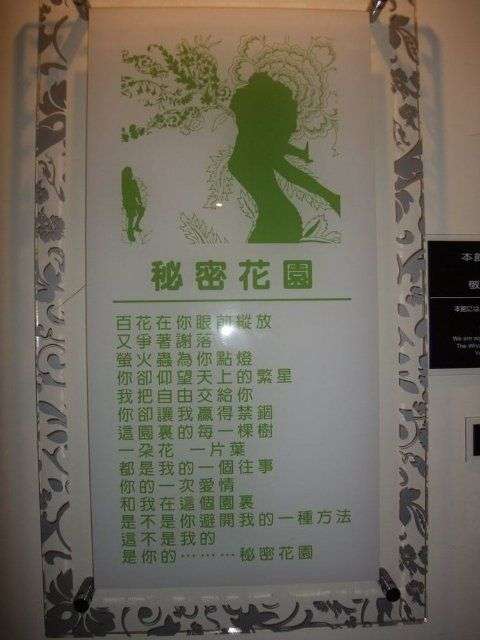 秘密花園
百花在你眼前縱放
又爭著謝落
螢火蟲為你點燈
你卻仰望天上的繁星
我把自由交給你
你卻讓我贏得禁錮
這園裏的每一棵樹
一朵花 一片葉
都是我的一個往事
你的一次愛情
和我在這個園裏
是不是你避開我的一種方法
這不是我的
是你的………秘密花園
本館
敬
本館には
We are so
The Who